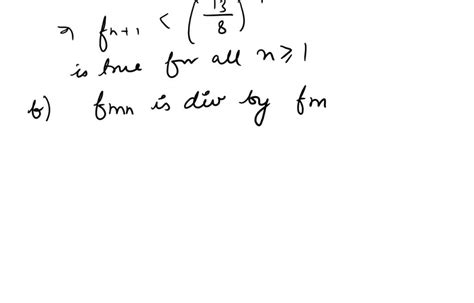 ⇒ f_{n+1} < (13/8)
is true for all n ≥ 1
b) f_{mn} is div by f_m